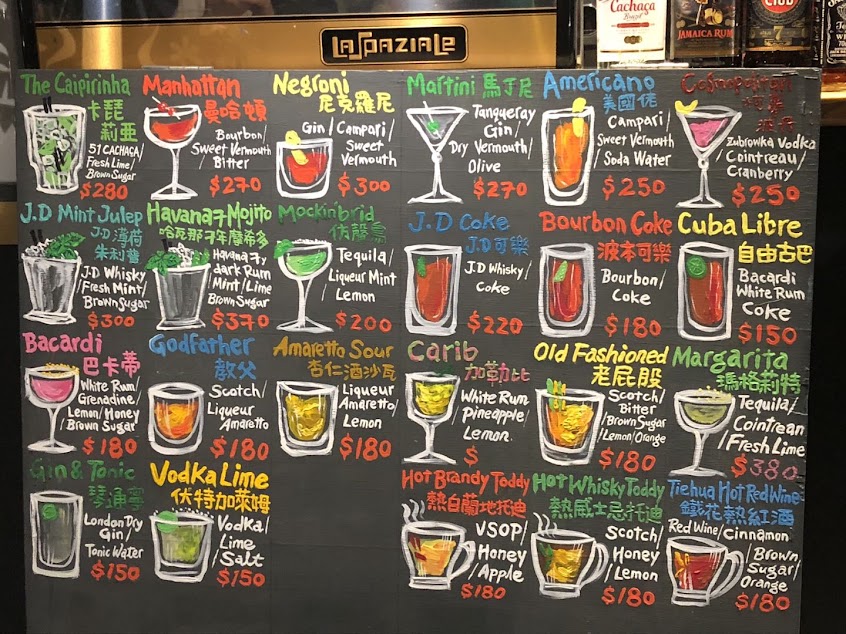 LaSpaziale
Cachaça
JAMAICA RUM
CLUB
7
The Caipirinha
卡琵
莉亞
51 CACHACA/
Fresh Lime/
Brown Sugar
$280
Manhattan
曼哈頓
Bourbon/
Sweet Vermouth
Bitter
$270
Negroni
尼克羅尼
Gin/Campari/
Sweet
Vermouth
$300
Martini 馬丁尼
Tanqueray
Gin/
Dry Vermouth/
Olive
$270
Americano
美國佬
Campari/
Sweet Vermouth
Soda Water
$250
Cosmopolitan
Zubrowka Vodka
Cointreau/
Cranberry
$250
J.D Mint Julep
J.D 薄荷
朱利普
J.D Whisky
/Fresh Mint/
Brown Sugar
$300
Havana 7 Mojito
哈瓦那7年摩希多
Havana 7/
dark Rum
Mint/Lime
Brown Sugar
$370
Mockinbrid
仿聲鳥
Tequila/
Liqueur Mint
Lemon
$200
J.D Coke
J.D 可樂
J.D Whisky/
Coke
$220
Bourbon Coke
波本可樂
Bourbon/
Coke
$180
Cuba Libre
自由古巴
Bacardi
White Rum
Coke
$150
Bacardi
巴卡蒂
White Rum/
Grenadine/
Lemon/Honey
/Brown Sugar
$180
Godfather
教父
Scotch/
Liqueur
Amaretto
$180
Amaretto Sour
杏仁酒沙瓦
Liqueur
Amaretto/
Lemon
$180
Carib
加勒比
White Rum
Pineapple/
Lemon
$
Old Fashioned
老屁股
Scotch/
Bitter
/Brown Sugar
/Lemon/Orange
$180
Margarita
瑪格莉特
Tequila/
Cointreau
/Fresh Lime
$380
Gin & Tonic
琴通寧
London Dry
Gin/
Tonic Water
$150
Vodka Lime
伏特加萊姆
Vodka/
Lime
Salt
$150
Hot Brandy Toddy
熱白蘭地托迪
VSOP/
Honey
/Apple
$180
Hot Whisky Toddy
熱威士忌托迪
Scotch
Honey
/Lemon
$180
Tiehua Hot Red Wine
鐵花熱紅酒
Red Wine/Cinnamon
/Brown
Sugar/
Orange
$180